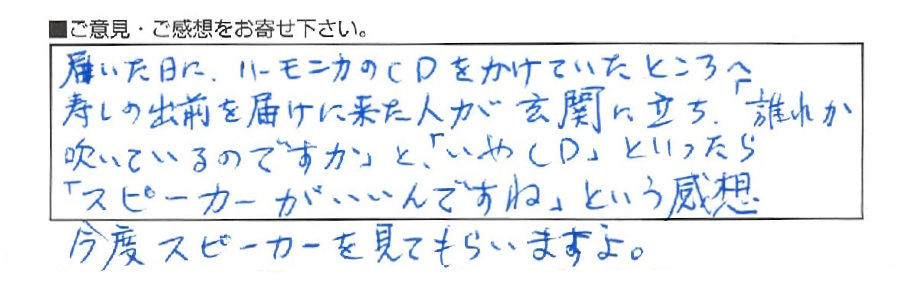 ■ご意見・ご感想をお寄せ下さい。
届いた日に、ハーモニカのCDをかけていたところへ
寿しの出前を届けに来た人が玄関に立ち、「誰れか
吹いているのですか」と、「いやCD」といったら
「スピーカーがいいんですね」という感想
今度スピーカーを見てもらいますよ。